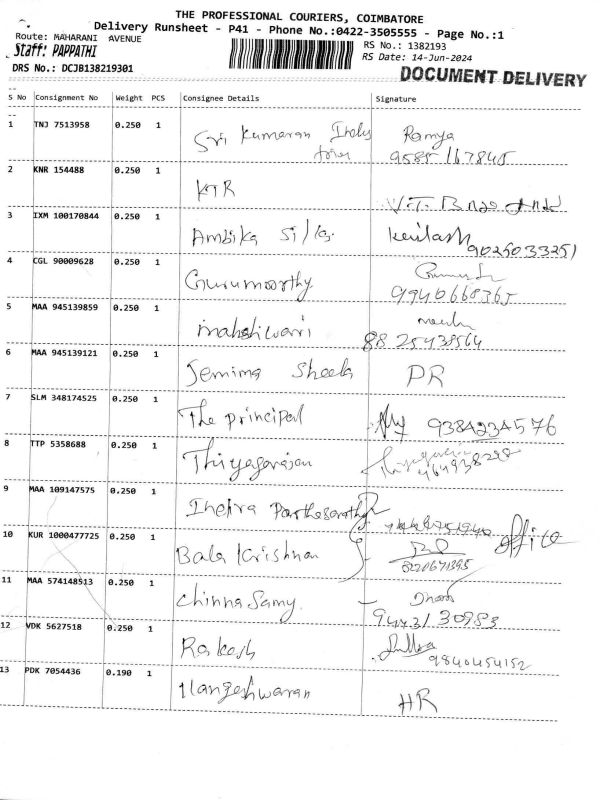 THE PROFESSIONAL COURIERS, COIMBATORE
Delivery Runsheet - P41 - Phone No.:0422-3505555 - Page No.:1
Route: MAHARANI AVENUE
RS No.: 1382193
Staff: PAPPATHI
RS Date: 14-Jun-2024
DRS No.: DCJB138219301
DOCUMENT DELIVERY
S No Consignment No Weight PCS Consignee Details Signature
1 TNJ 7513958 0.250 1 Sri Kumaran Ramya
9585167845
2 KNR 154488 0.250 1 KTR
3 IXM 100170844 0.250 1 Ambika Silks Kailash
9025033251
4 CGL 90009628 0.250 1 Gurumoorthy
9940668365
5 MAA 945139859 0.250 1 maheshwari
88 25438564
6 MAA 945139121 0.250 1 Jemima Sheela PR
7 SLM 348174525 0.250 1 The principal 9384234576
8 TTP 5358688 0.250 1 Thiyagarajan
9 MAA 109147575 0.250 1 Indira Parthasarathy
office
10 KUR 1000477725 0.250 1 Bala Krishnan
8220671395
11 MAA 574148513 0.250 1 Chinna Samy
12 VDK 5627518 0.250 1 Rakesh
9840454152
13 PDK 7054436 0.190 1 Ilangeshwaran HR